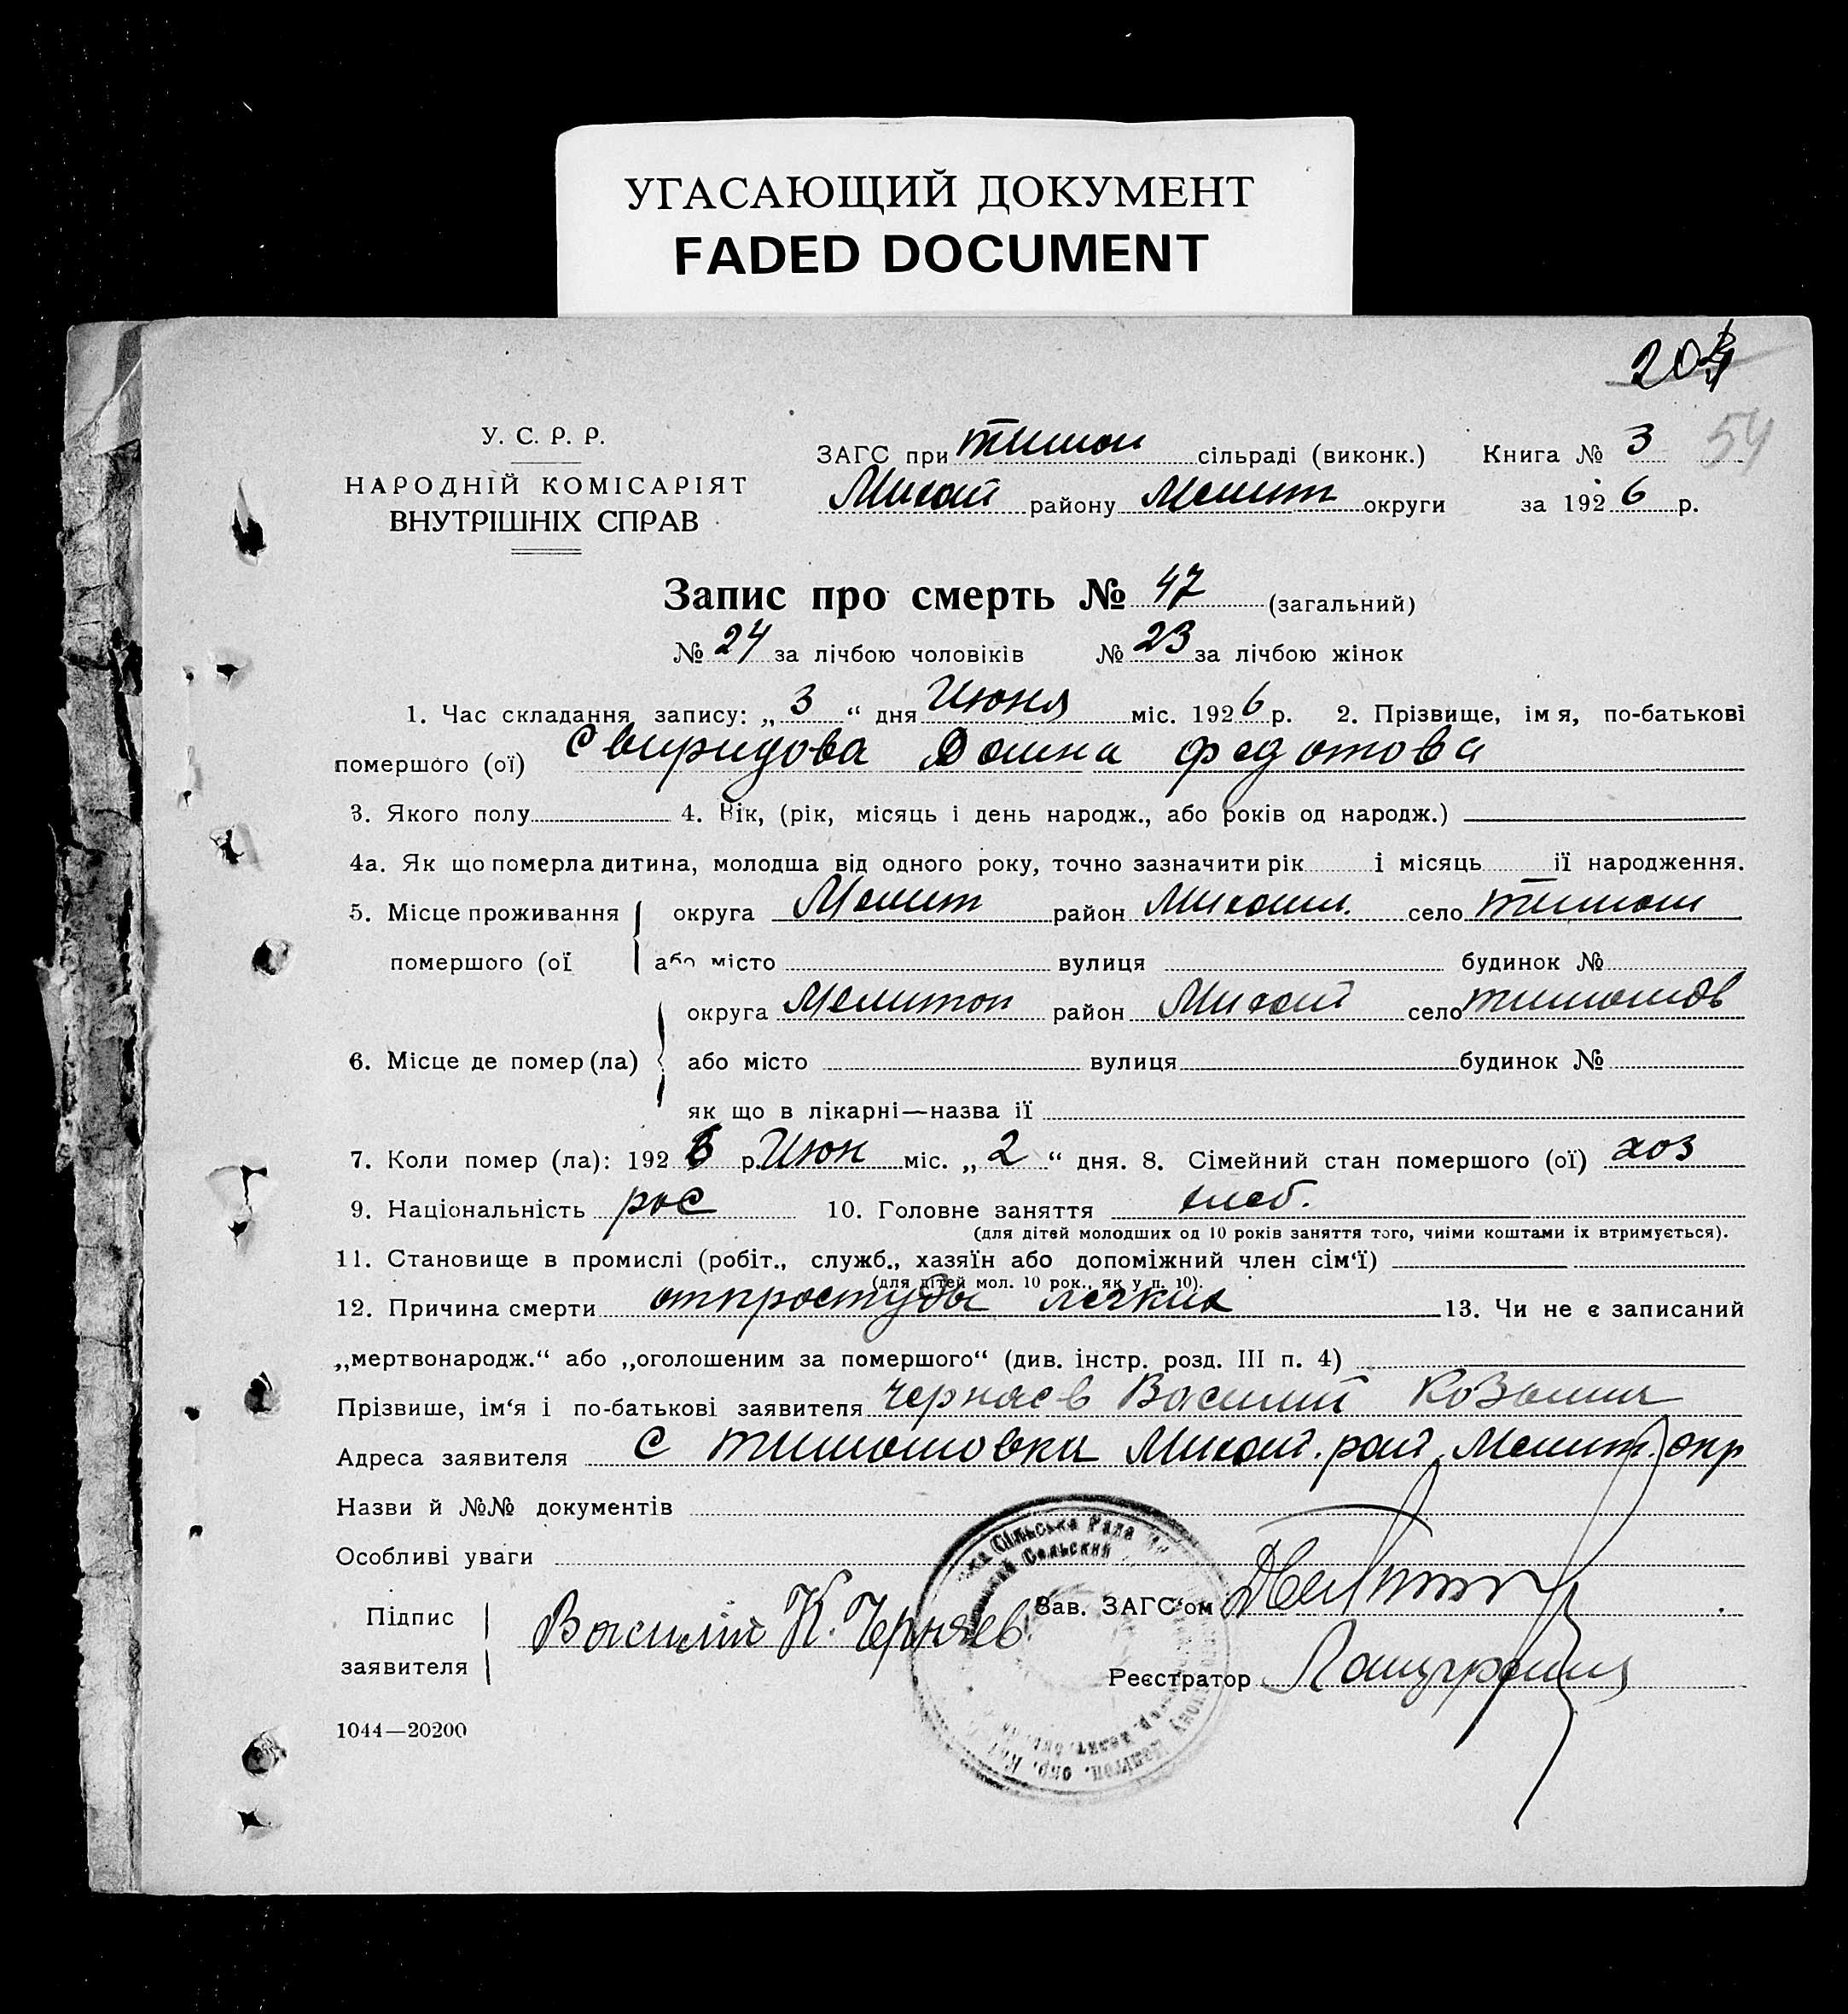 УГАСАЮЩИЙ ДОКУМЕНТ
FADED DOCUMENT
54
У. С. Р. Р.
НАРОДНІЙ КОМІСАРІЯТ
ВНУТРІШНІХ СПРАВ
ЗАГС при Тимош сільраді (виконк.) Книга № 3
Михай району Мелит округи за 1926 р.
Запис про смерть № 47 (загальний)
№ 24 за лічбою чоловіків № 23 за лічбою жінок
1. Час складання запису: „3“ дня Июня міс. 1926 р. 2. Прізвище, імя, по-батькові
помершого (ої) Свиридова Домна Федотова
3. Якого полу 4. Вік, (рік, місяць і день народж., або років од народж.)
4а. Як що померла дитина, молодша від одного року, точно зазначити рік і місяць її народження.
5. Місце проживання округа Мелит район Михайл. село Тимош
помершого (ої або місто вулиця будинок №
округа Мелитоп район Михай село Тимошов
6. Місце де помер (ла) або місто вулиця будинок №
як що в лікарні—назва її
7. Коли помер (ла): 1926 р. Июн міс. „2“ дня. 8. Сімейний стан помершого (ої) хоз
9. Національність рос 10. Головне заняття хлеб.
(для дітей молодших од 10 років заняття того, чиїми коштами їх втримується).
11. Становище в промислі (робіт., служб., хазяїн або допоміжний член сім‘ї)
(для дітей мол. 10 рок., як у п. 10).
12. Причина смерти отпростуды легких 13. Чи не є записаний
„мертвонародж.“ або „оголошеним за помершого“ (див. інстр. розд. III п. 4)
Прізвише, ім‘я і по-батькові заявителя Черняев Василий Козьмич
Адреса заявителя С Тимошовки Михай. рай. Мелит. окр
Назви й №№ документів
Особливі уваги
Підпис
заявителя Василий К. Черняев
Зав. ЗАГС‘ом
Реєстратор
Сільська Рада
Сельский
1044—20200